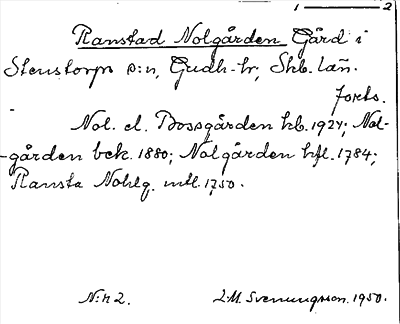 1 — 2
Ranstad Nolgården Gård i
Stenstorps s:n, Gudh. hr, Skb. län.
forts.
Nol. el. Bossgården kb. 1924; Nol-
-gården bek. 1880; Nolgården hfl. 1784;
Ransta Nohlg. mtl. 1750.
N:r 2. L.M. Svenungsson. 1950.